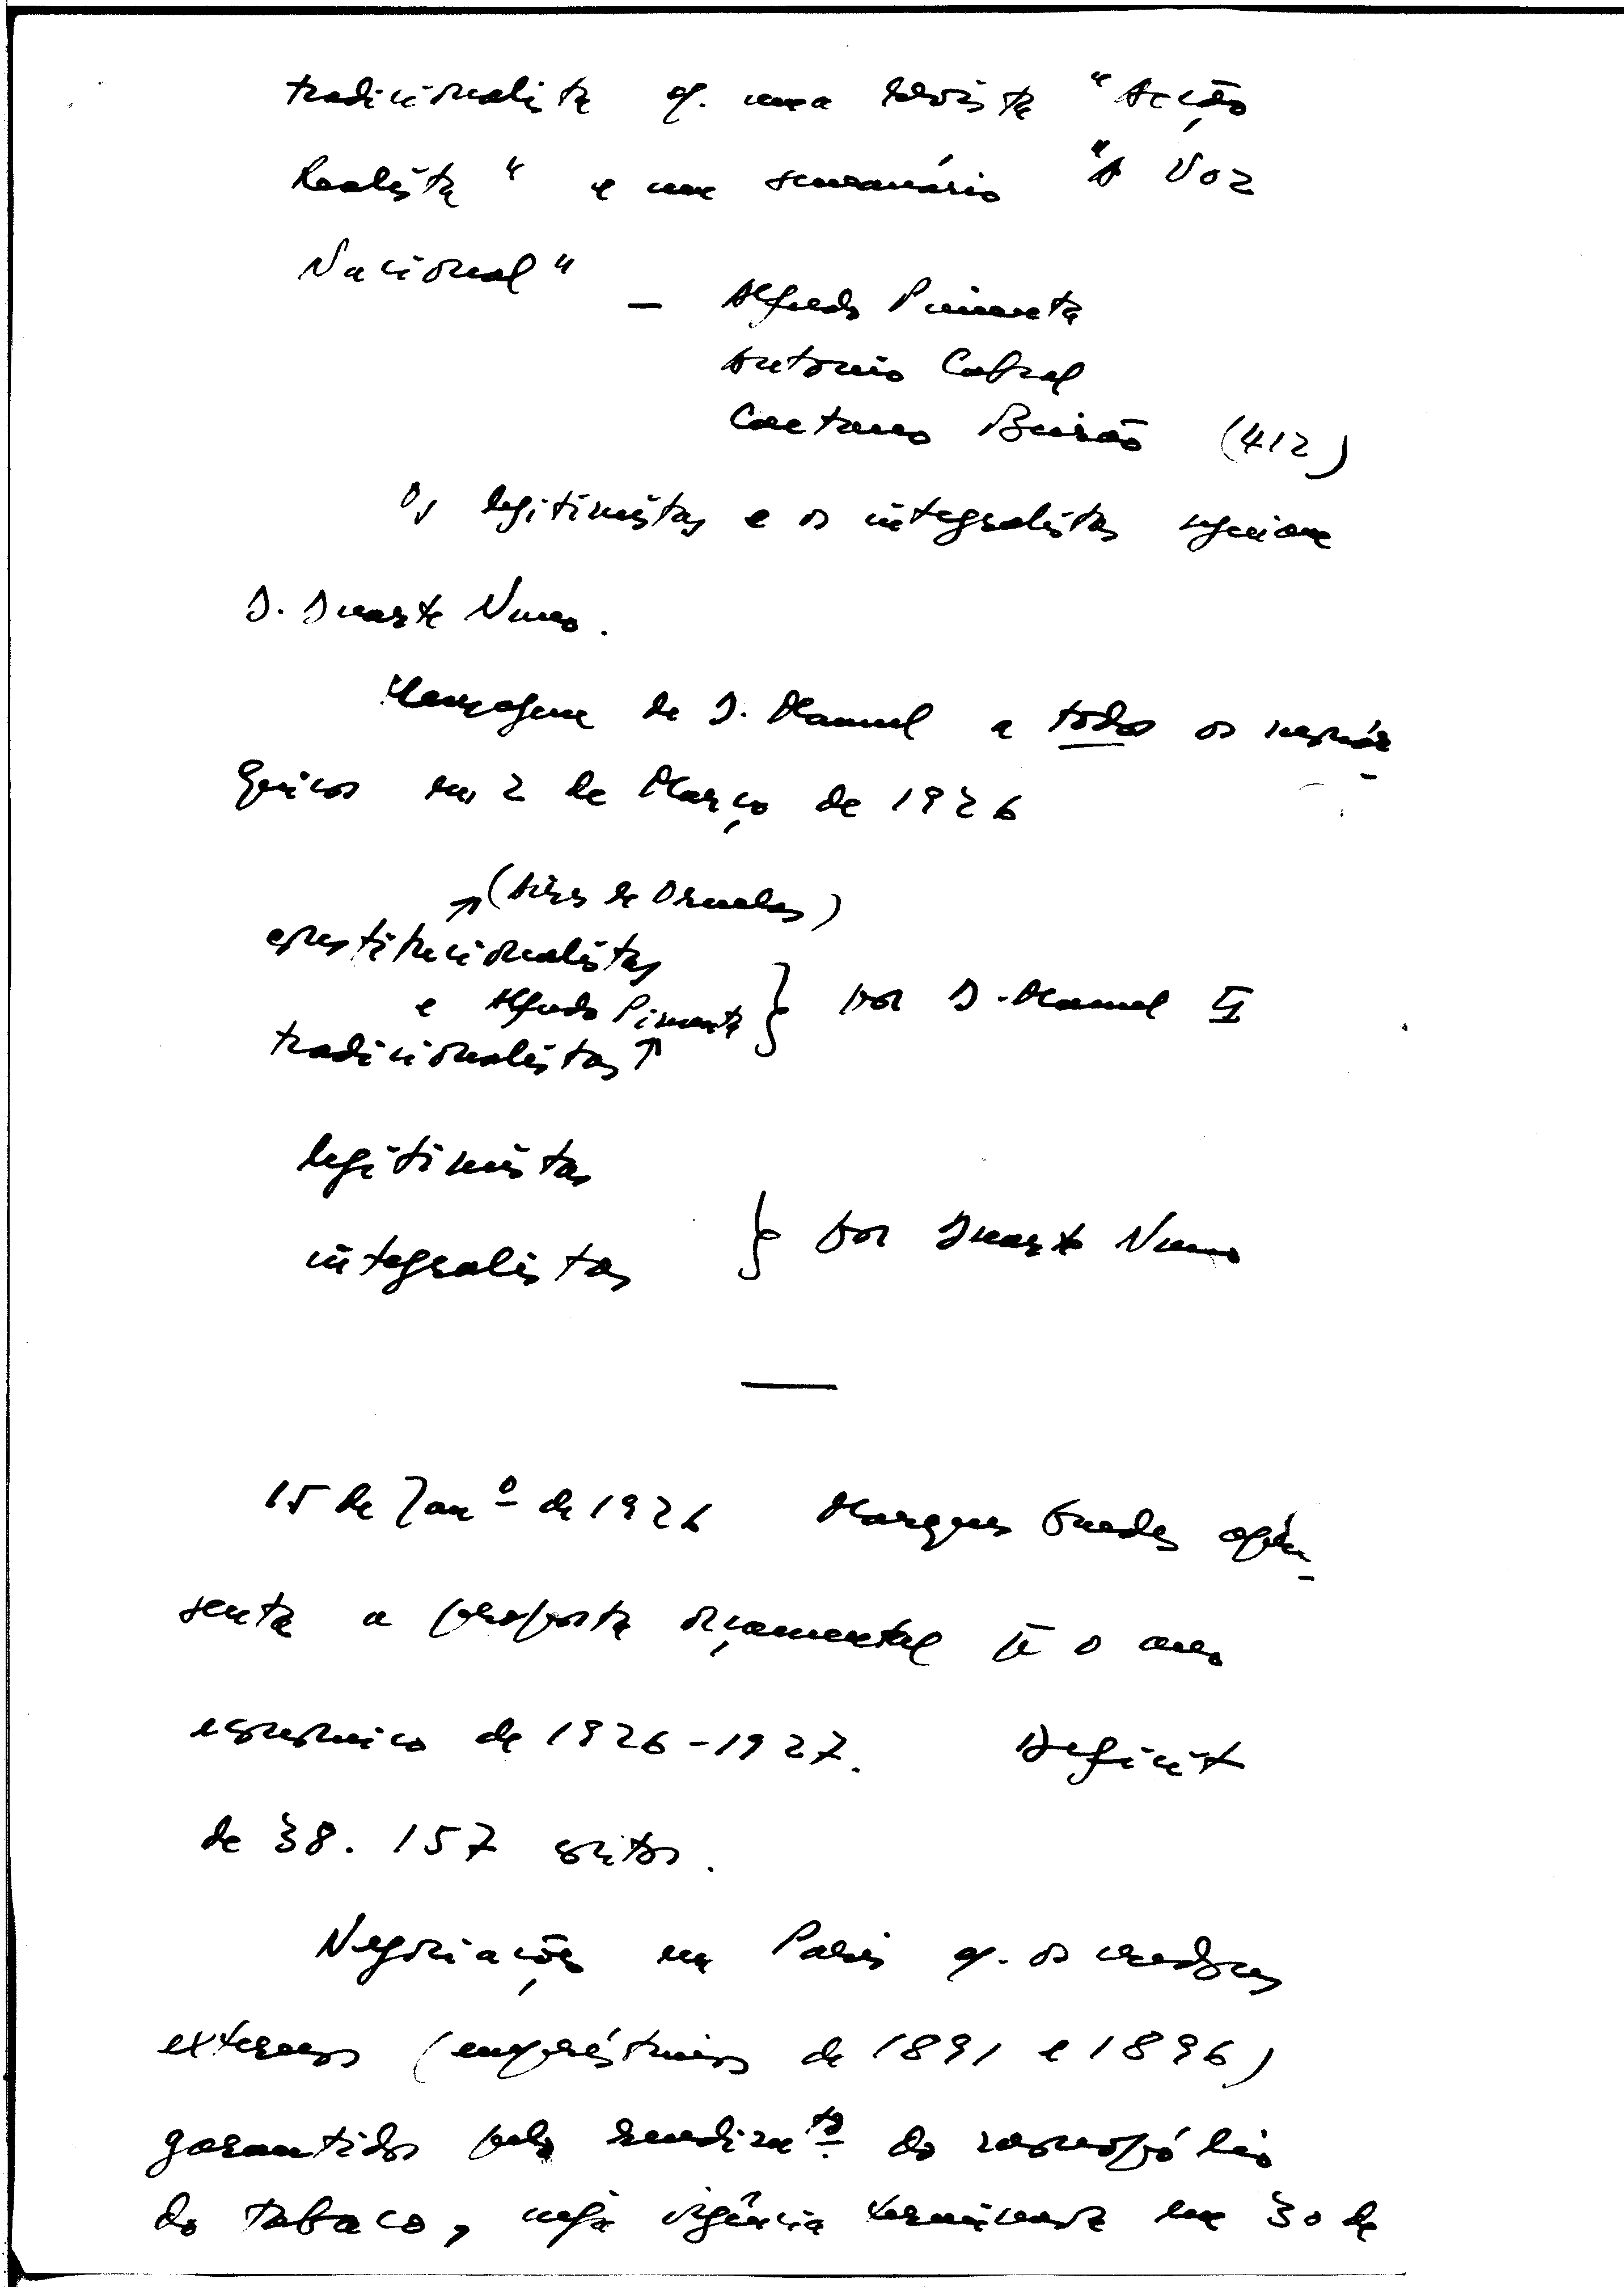 tradicionalista c/. uma revista "Acção
Realista" e um semanário "A Voz
Nacional" — Alfredo Pimenta
António Cabral
Caetano Beirão (412)
Os legitimistas e os integralistas seguiam
D. Duarte Nuno.
Mensagem de D. Manuel a todos os monár-
quicos em 2 de Março de 1926
↗ (Aires de Ornelas)
constitucionalistas
e Alfredo Pimenta } por D. Manuel II
tradicionalistas ↑
legitimistas
integralistas } por Duarte Nuno
—
15 de Janº de 1926 Marques Guedes apre-
senta a proposta orçamental pª o ano
económico de 1926-1927. Deficit
de 38.157 contos.
Negociações em Paris c/. os credores
externos (empréstimos de 1891 e 1896)
garantidos pelo rendimtº do monopólio
do tabaco, cuja vigência terminava em 30 de